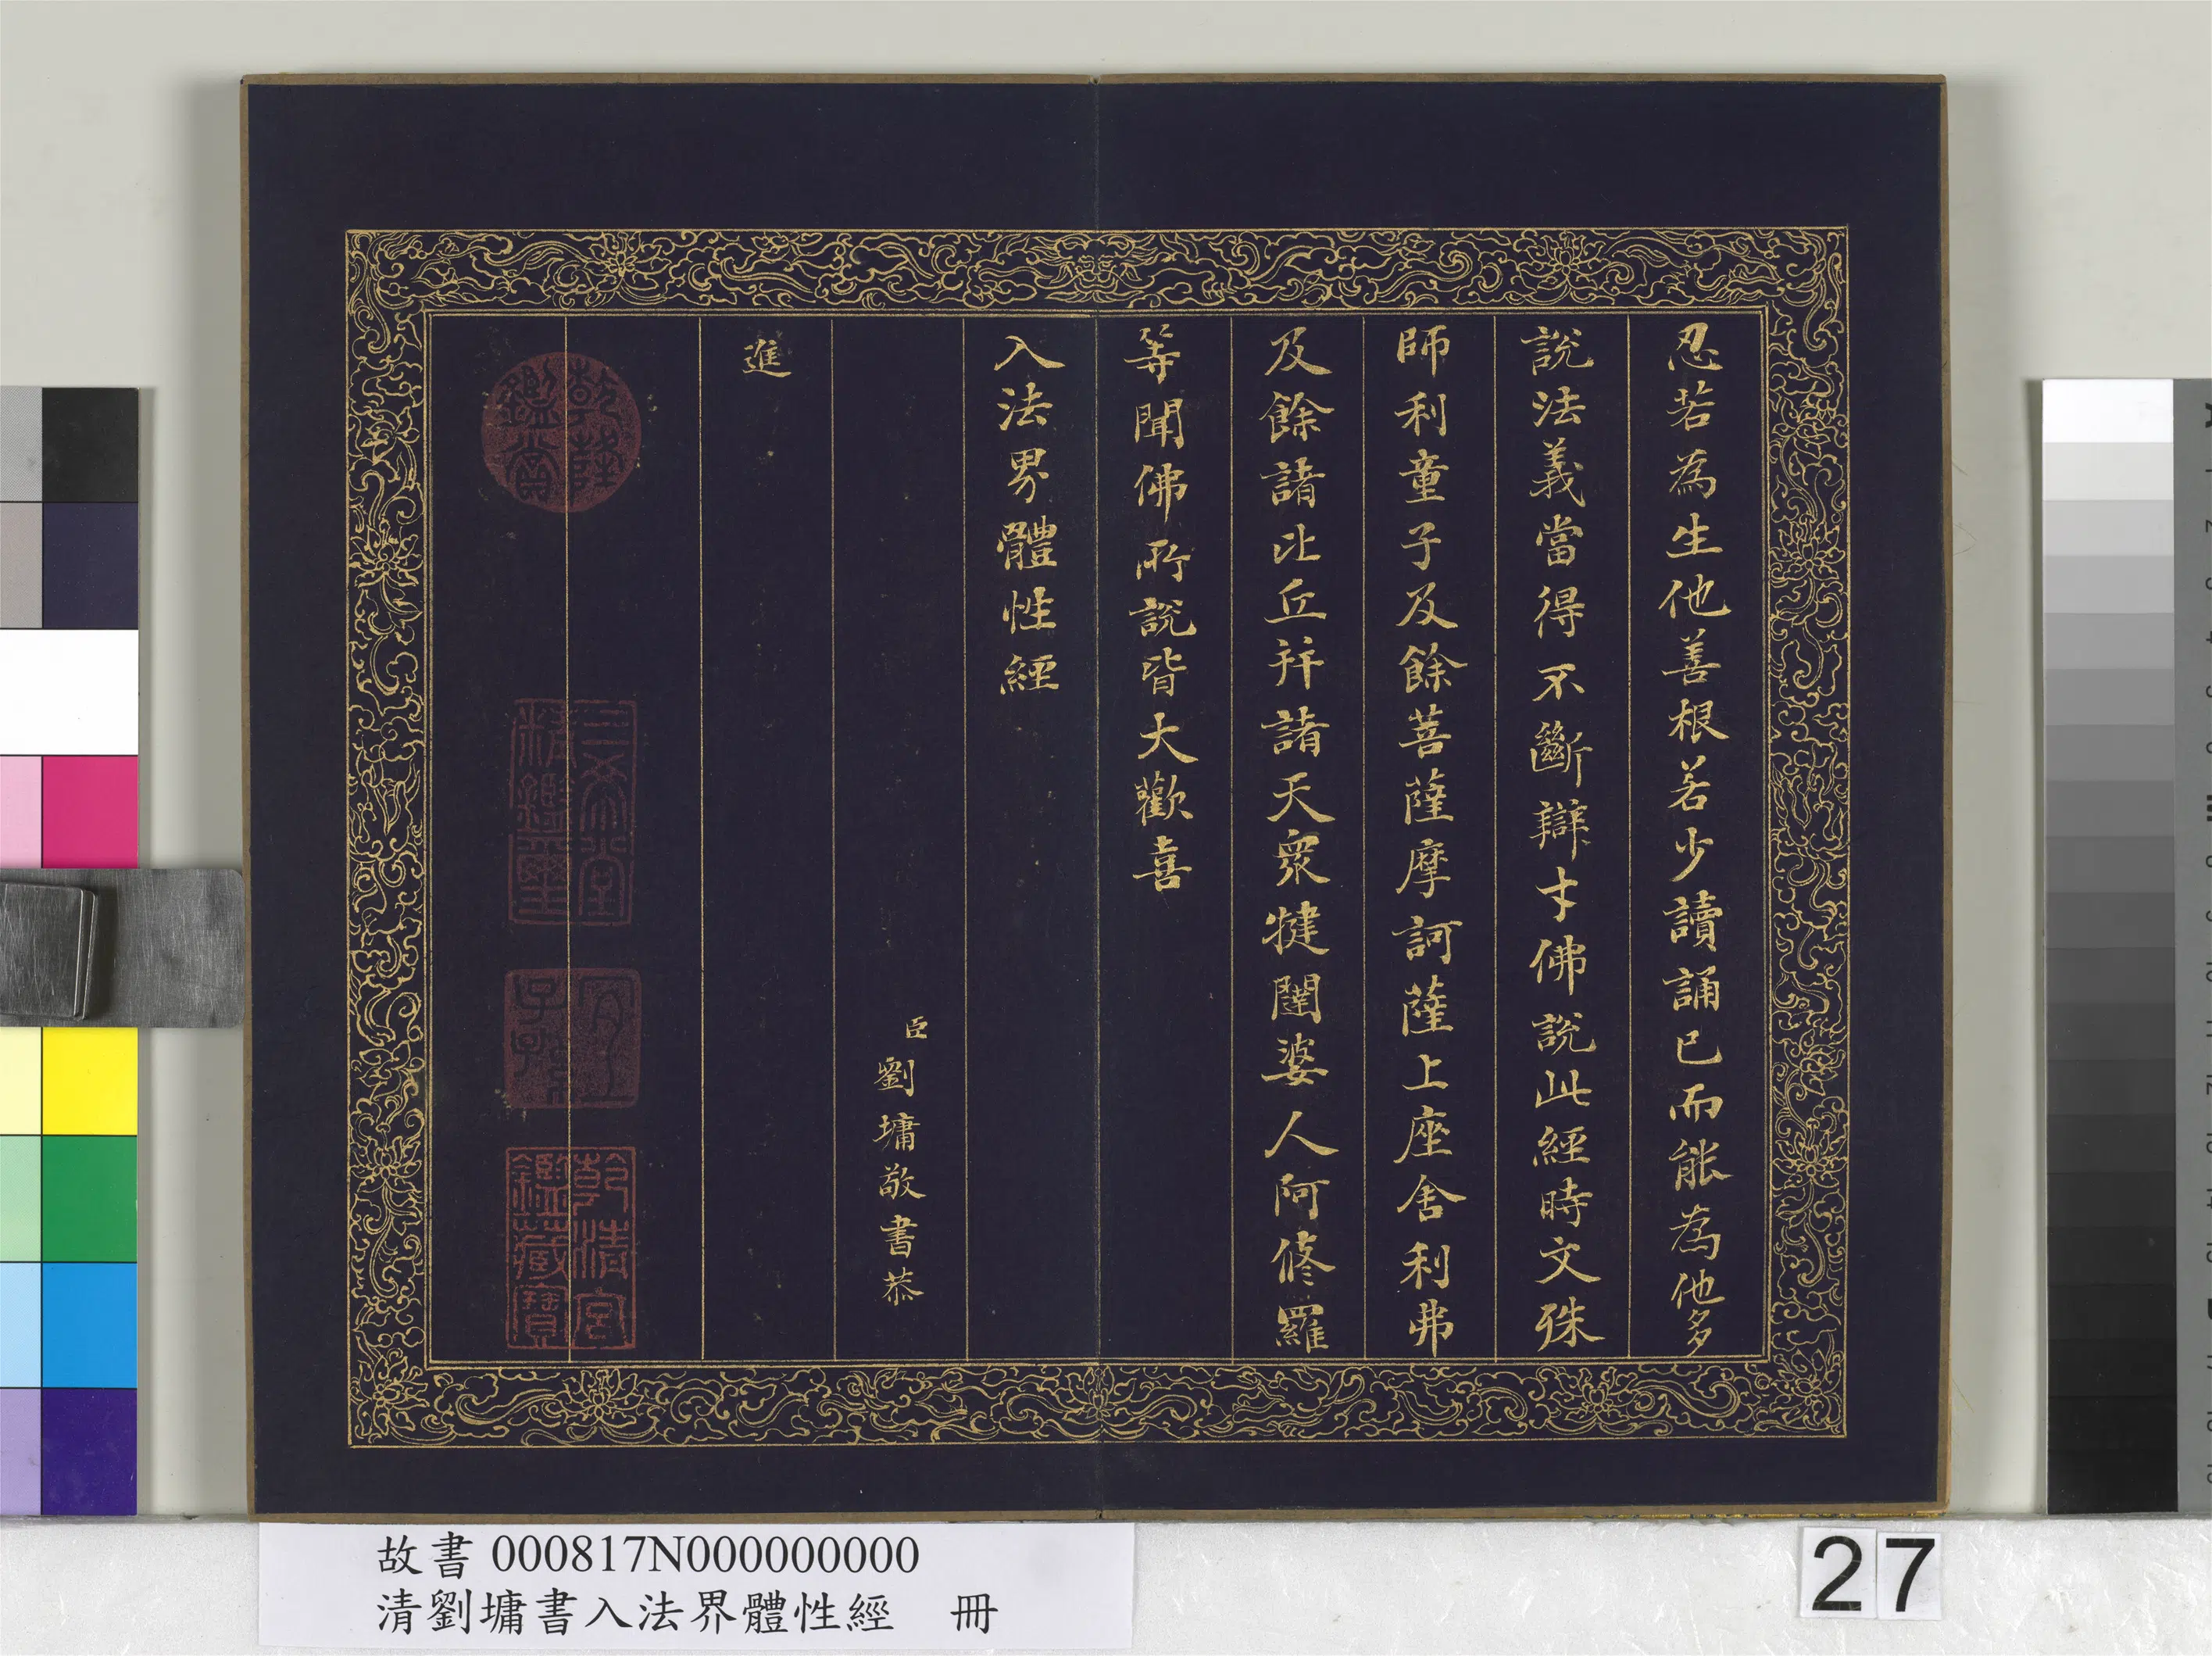 忍若為生他善根若少讀誦已而能為他多
說法義當得不斷辯才佛說此經時文殊
師利童子及餘菩薩摩訶薩上座舍利弗
及餘諸比丘并諸天眾揵闥婆人阿修羅
等聞佛所說皆大歡喜
入法界體性經
臣劉墉敬書恭
進
乾隆鑑賞
三希堂精鑑璽
宜子孫
乾清宮鑑藏寶
故書 000817N000000000
清劉墉書入法界體性經 冊
27